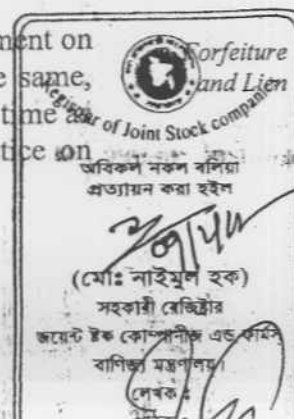 ment on
e same,
time a
tice on
Forfeiture
and Lien
Registrar of Joint Stock companies
অবিকল নকল বলিয়া
প্রত্যায়ন করা হইল
(মোঃ নাইমুল হক)
সহকারী রেজিষ্ট্রার
জয়েন্ট ষ্টক কোম্পানীজ এন্ড ফার্মস
বাণিজ্য মন্ত্রণালয়।
লেখক ঃ